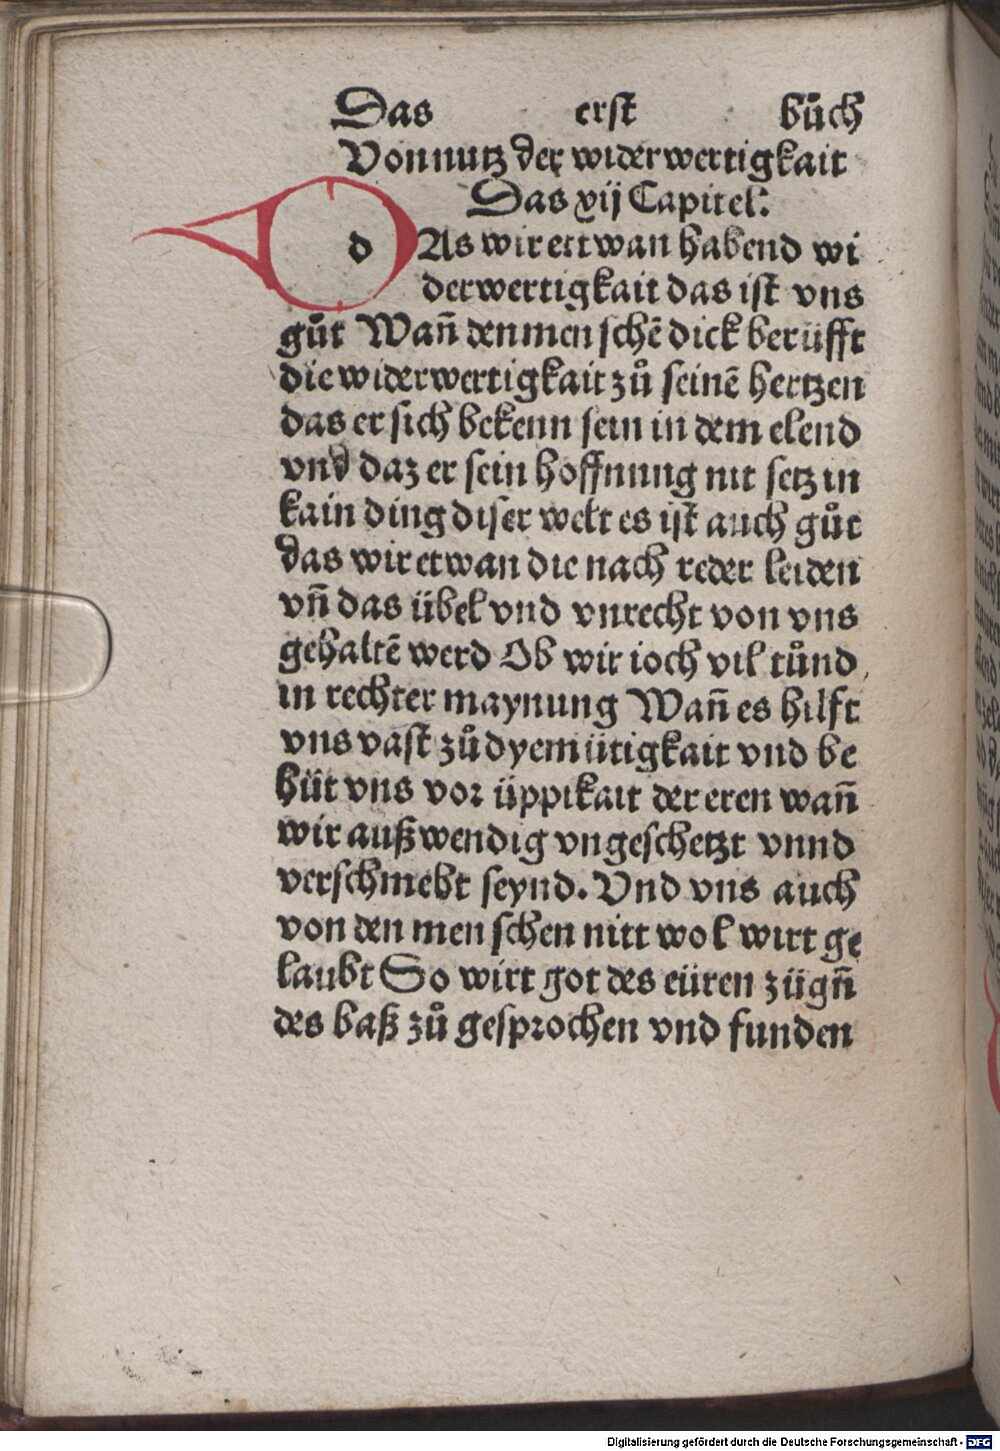 Das erst bůch
Von nutz der widerwertigkait
Das xij Capitel:
d As wir ettwan habend wi
derwertigkait das ist vns
gůt Wañ den menschē dick berüfft
die widerwertigkait zů seinē hertzen
das er sich bekenn sein in dem elend
vnd daz er sein hoffnung nit setz in
kain ding diser welt es ist auch gůt
das wir etwan die nach reder leiden
vñ das übel vnd vnrecht von vns
gehaltē werd Ob wir ioch vil tůnd
in rechter maynung Wañ es hilft
vns vast zů dyemütigkait vnd be
hüt vns vor üppikait der eren wañ
wir außwendig vngeschetzt vnnd
verschmeht seynd. Vnd vns auch
von den menschen nitt wol wirt ge
laubt So wirt got des eüren zügñ
des baß zů gesprochen vnd funden
Digitalisierung gefördert durch die Deutsche Forschungsgemeinschaft - DFG